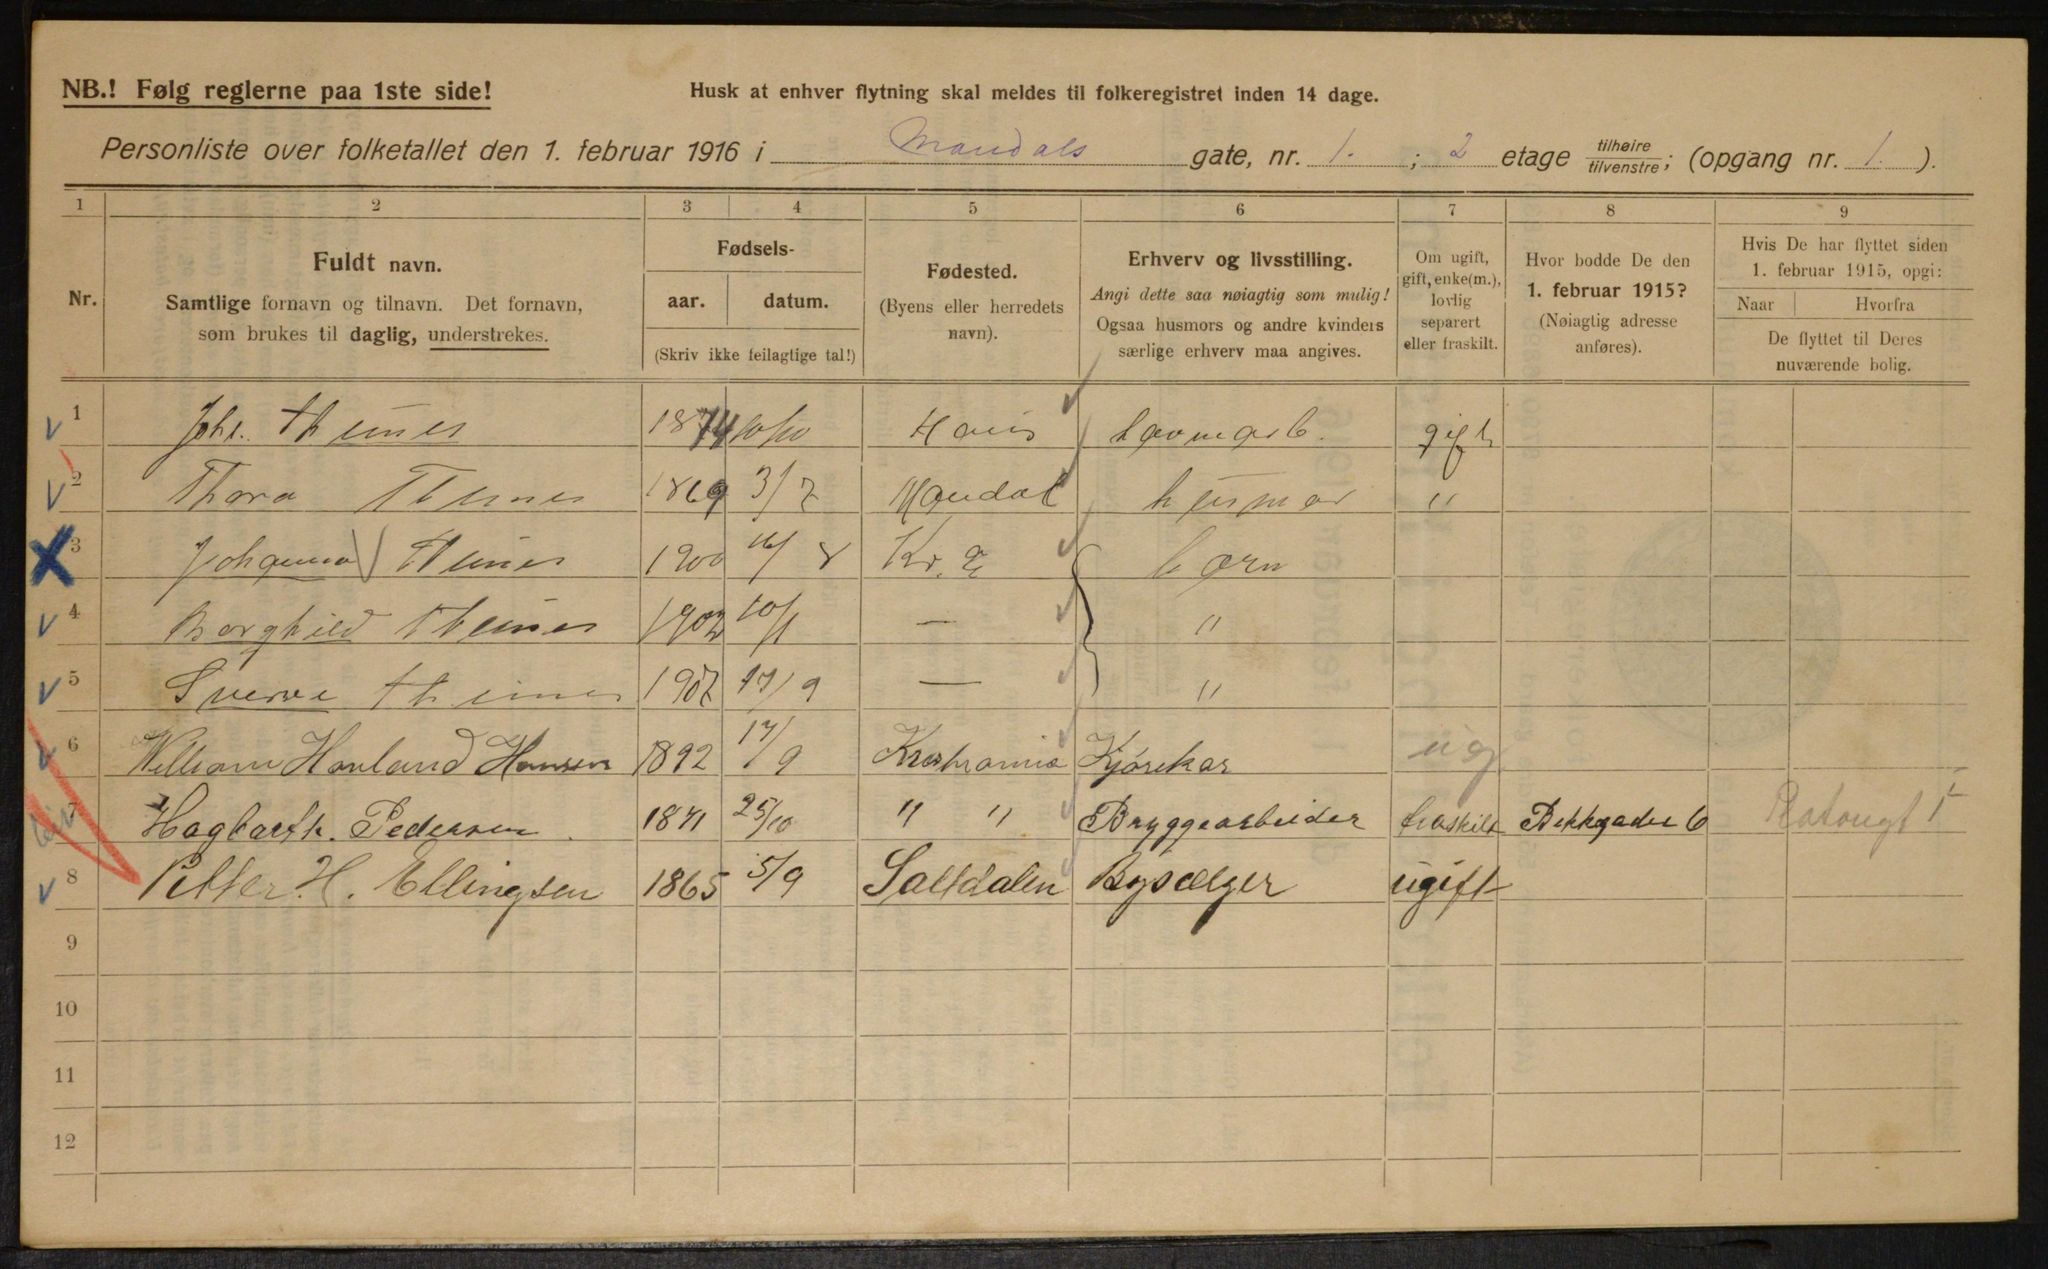 NB.! Følg reglerne paa 1ste side!
Husk at enhver flytning skal meldes til folkeregistret inden 14 dage.
Personliste over folketallet den 1. februar 1916 i Mandals gate, nr. 1. ; 2 etage tilhøire/tilvenstre; (opgang nr. 1. ).
1 2 3 4 5 6 7 8 9
Nr.
Fuldt navn.
Samtlige fornavn og tilnavn. Det fornavn,
som brukes til daglig, understrekes.
Fødsels-
aar. datum.
(Skriv ikke feilagtige tal!)
Fødested.
(Byens eller herredets
navn).
Erhverv og livsstilling.
Angi dette saa nøiagtig som mulig!
Ogsaa husmors og andre kvinders
særlige erhverv maa angives.
Om ugift,
gift, enke(m.),
lovlig
separert
eller fraskilt.
Hvor bodde De den
1. februar 1915?
(Nøiagtig adresse
anføres).
Hvis De har flyttet siden
1. februar 1915, opgi:
Naar Hvorfra
De flyttet til Deres
nuværende bolig.
1 Joh. Theimes 1874 10/10 gift
2 Thora Theimes 1869 3/7 Mandal husmor "
3 Johanna Theimes 1900 16/8 Kr.a børn
4 Borghild Theimes 1902 10/1 — "
5 Sverre Theimes 1907 17/9 — "
6 William Havland Hansen 1892 17/9 Kristiania Kjørekar ug
7 Hagbarth. Pedersen 1871 25/10 " " Bryggearbeider fraskilt Bekkgaden 6
8 Petter. H. Ellingsen 1865 5/9 Saltdalen Bysælger ugift
9
10
11
12